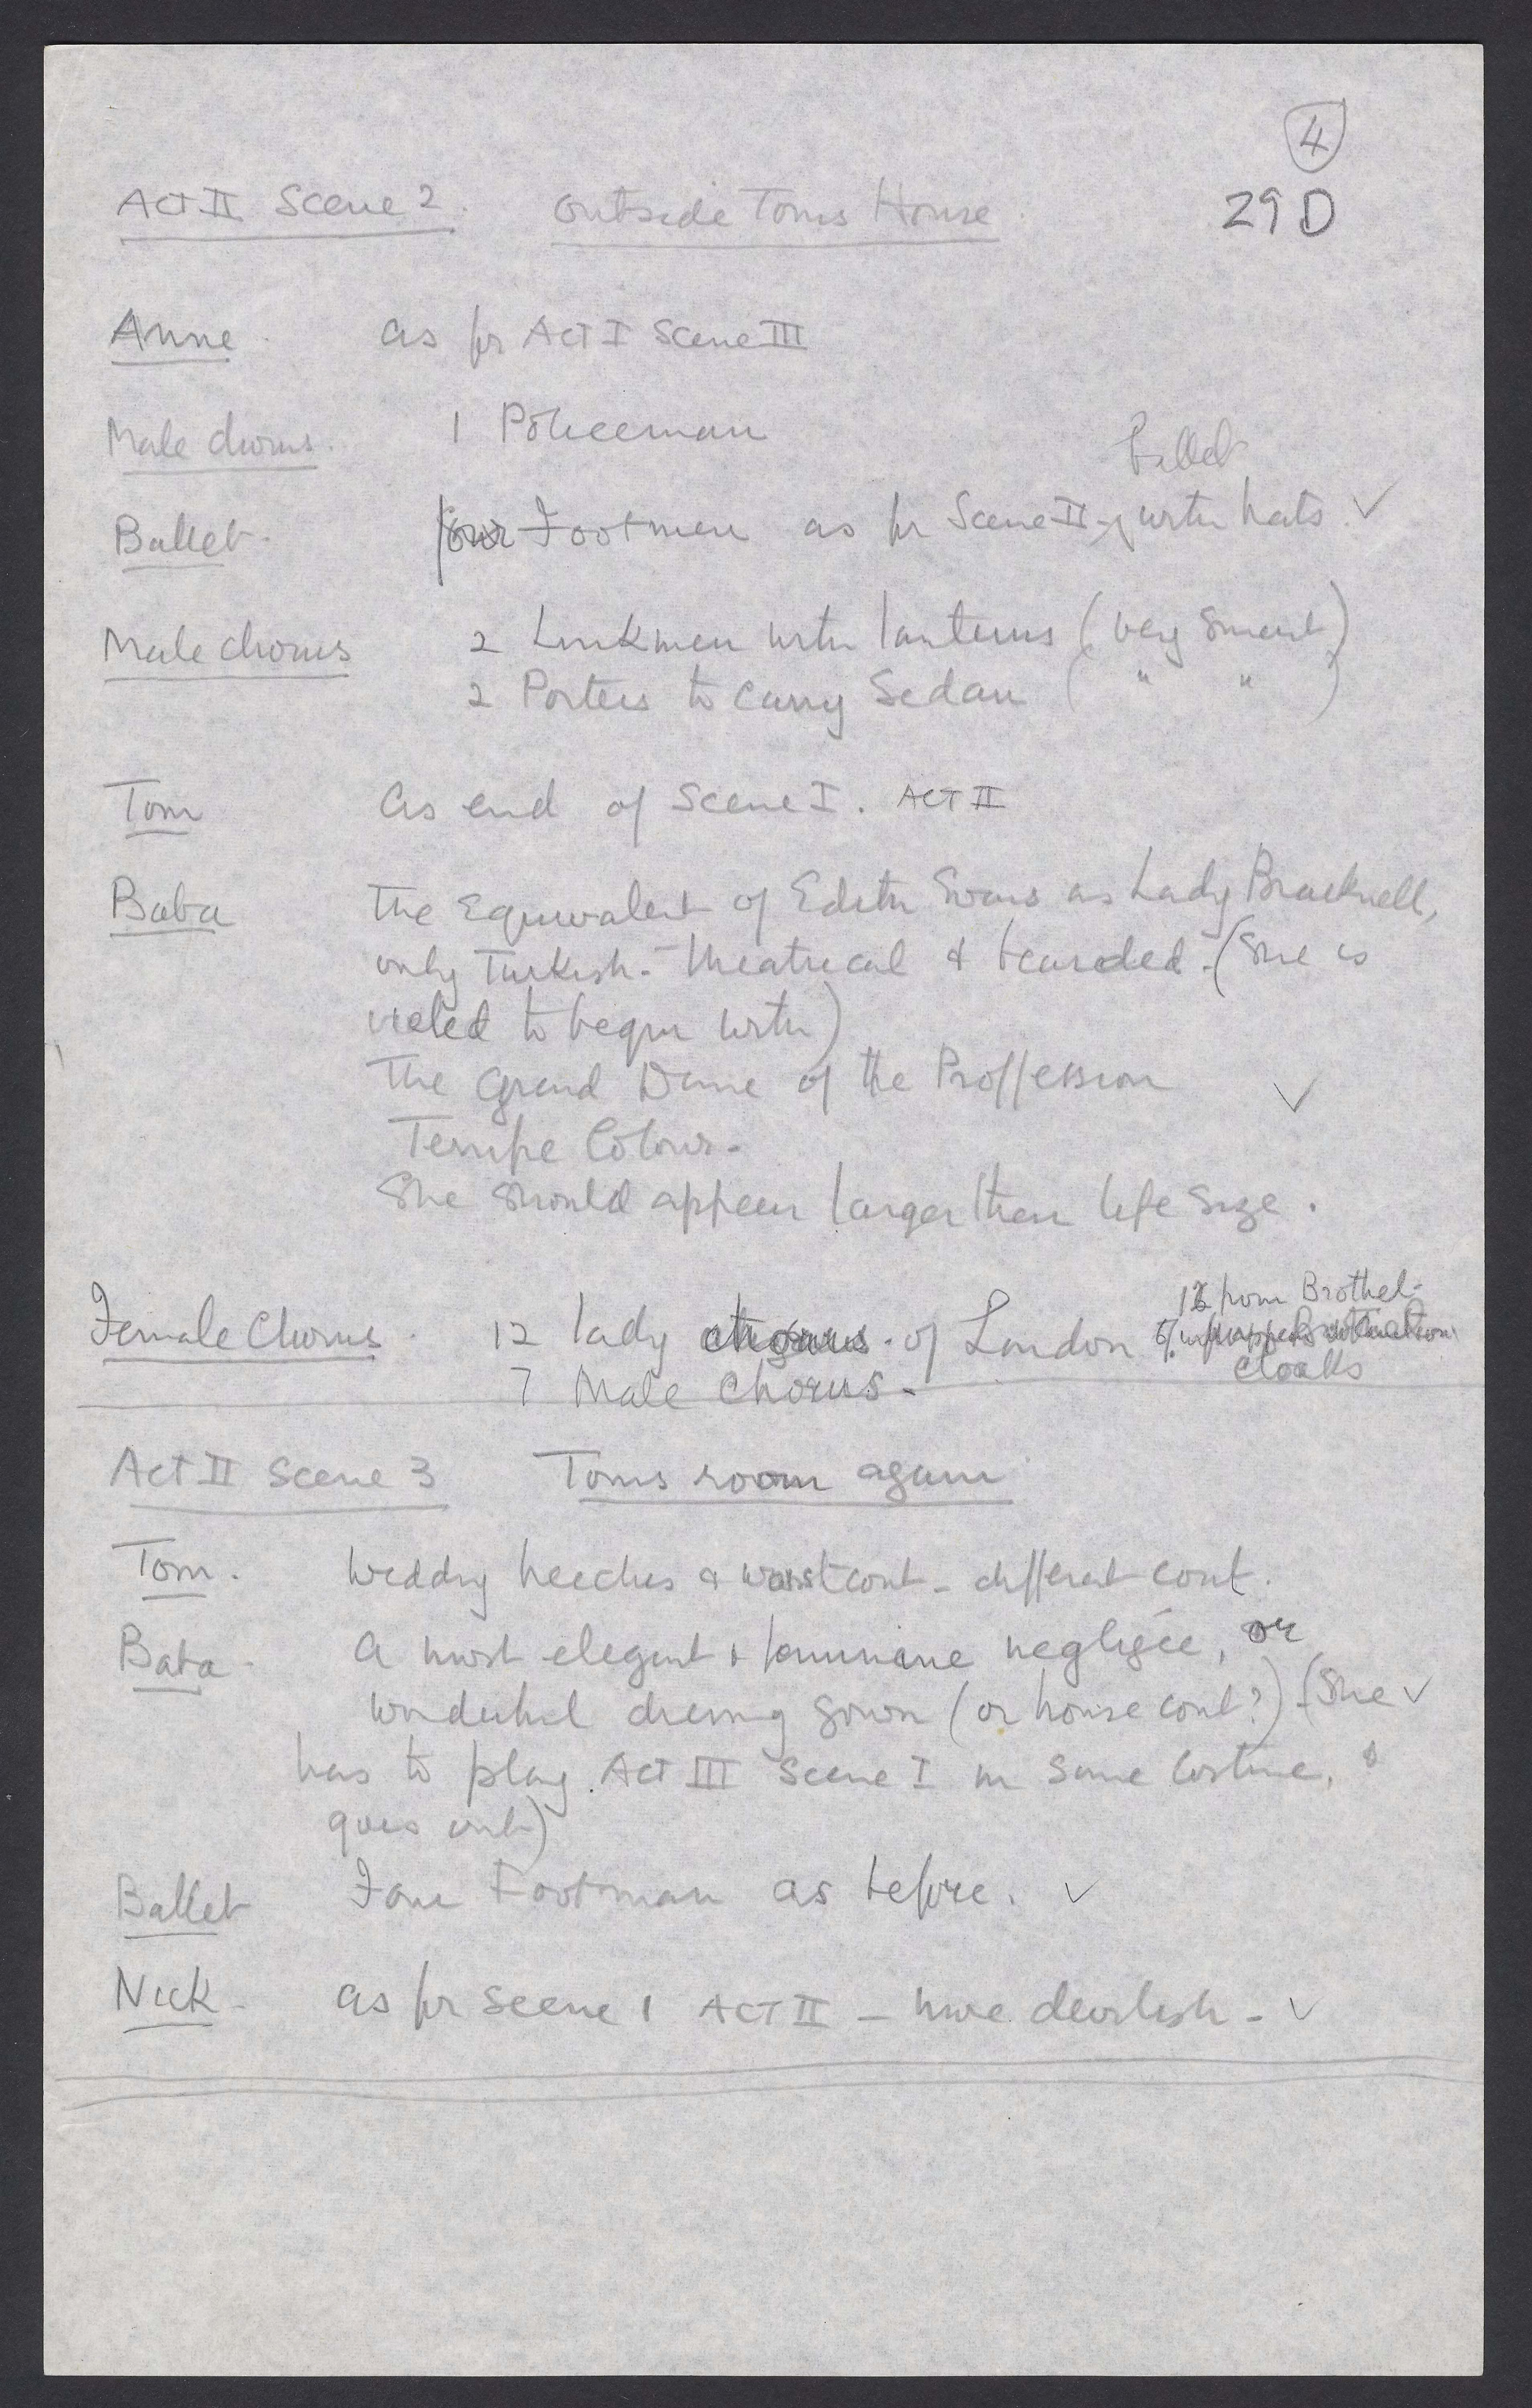 4
29D
Act II Scene 2. Outside Toms House.
Anne. as for Act I Scene III
Male chorus. 1 Policeman
Ballet
Ballet. four Footmen as for Scene II with hats. ✓
Male chorus 2 Linkmen with lanterns (very smart)
2 Porters to carry Sedan ( " " )
Tom as end of Scene I. ACT II
Baba The Equivalent of Edith Evans as Lady Bracknell,
only Turkish - theatrical & bearded - (She is
veiled to begin with)
The Grand Dame of the Proffession ✓
Terrific Colour -
She should appear larger than life size.
12 from Brothel -
Female Chorus. 12 lady of London
cloaks
7 Male Chorus -
Act II Scene 3 Toms room again
Tom. Wedding breeches & waistcoat - different coat.
Baba - A most elegant & feminine negligée, or
wonderful dressing gown (or house coat?) - (She ✓
has to play Act III Scene I in same costume, &
goes out)
Ballet Four Footman as before. ✓
Nick - as for Scene 1 ACT II - more devilish - ✓